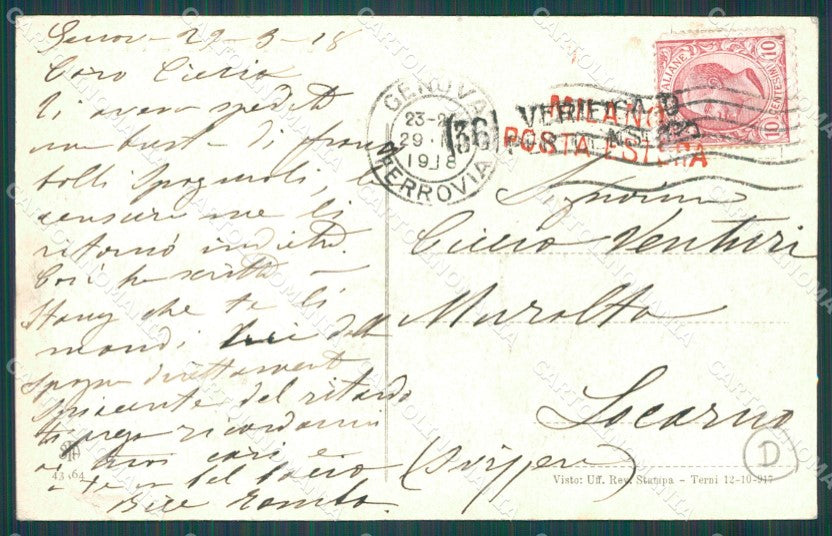 Genova 29-3-18
Caro Ciccio
Ti avevo spedito
una busta di franco
bolli Spagnoli, la
censura me li
ritornò indietro.
Così ho scritto a
che te li
mandi dalla
Spagna direttament
Spiacente del ritardo
ti prego ricordarmi
ai tuoi cari e
a te un bel bacio
Bice
43 64
GENOVA
23-2
29
1918
FERROVIA
(36) VERIFICATO
MILANO
POSTA ESTERA
10
CENTESIMI
10
Signorino
Ciccio Venturi
Muralto
Locarno
(Svizzera)
D
Visto: Uff. Rev. Stampa - Terni 12-10-917
CARTOLINOMANIA